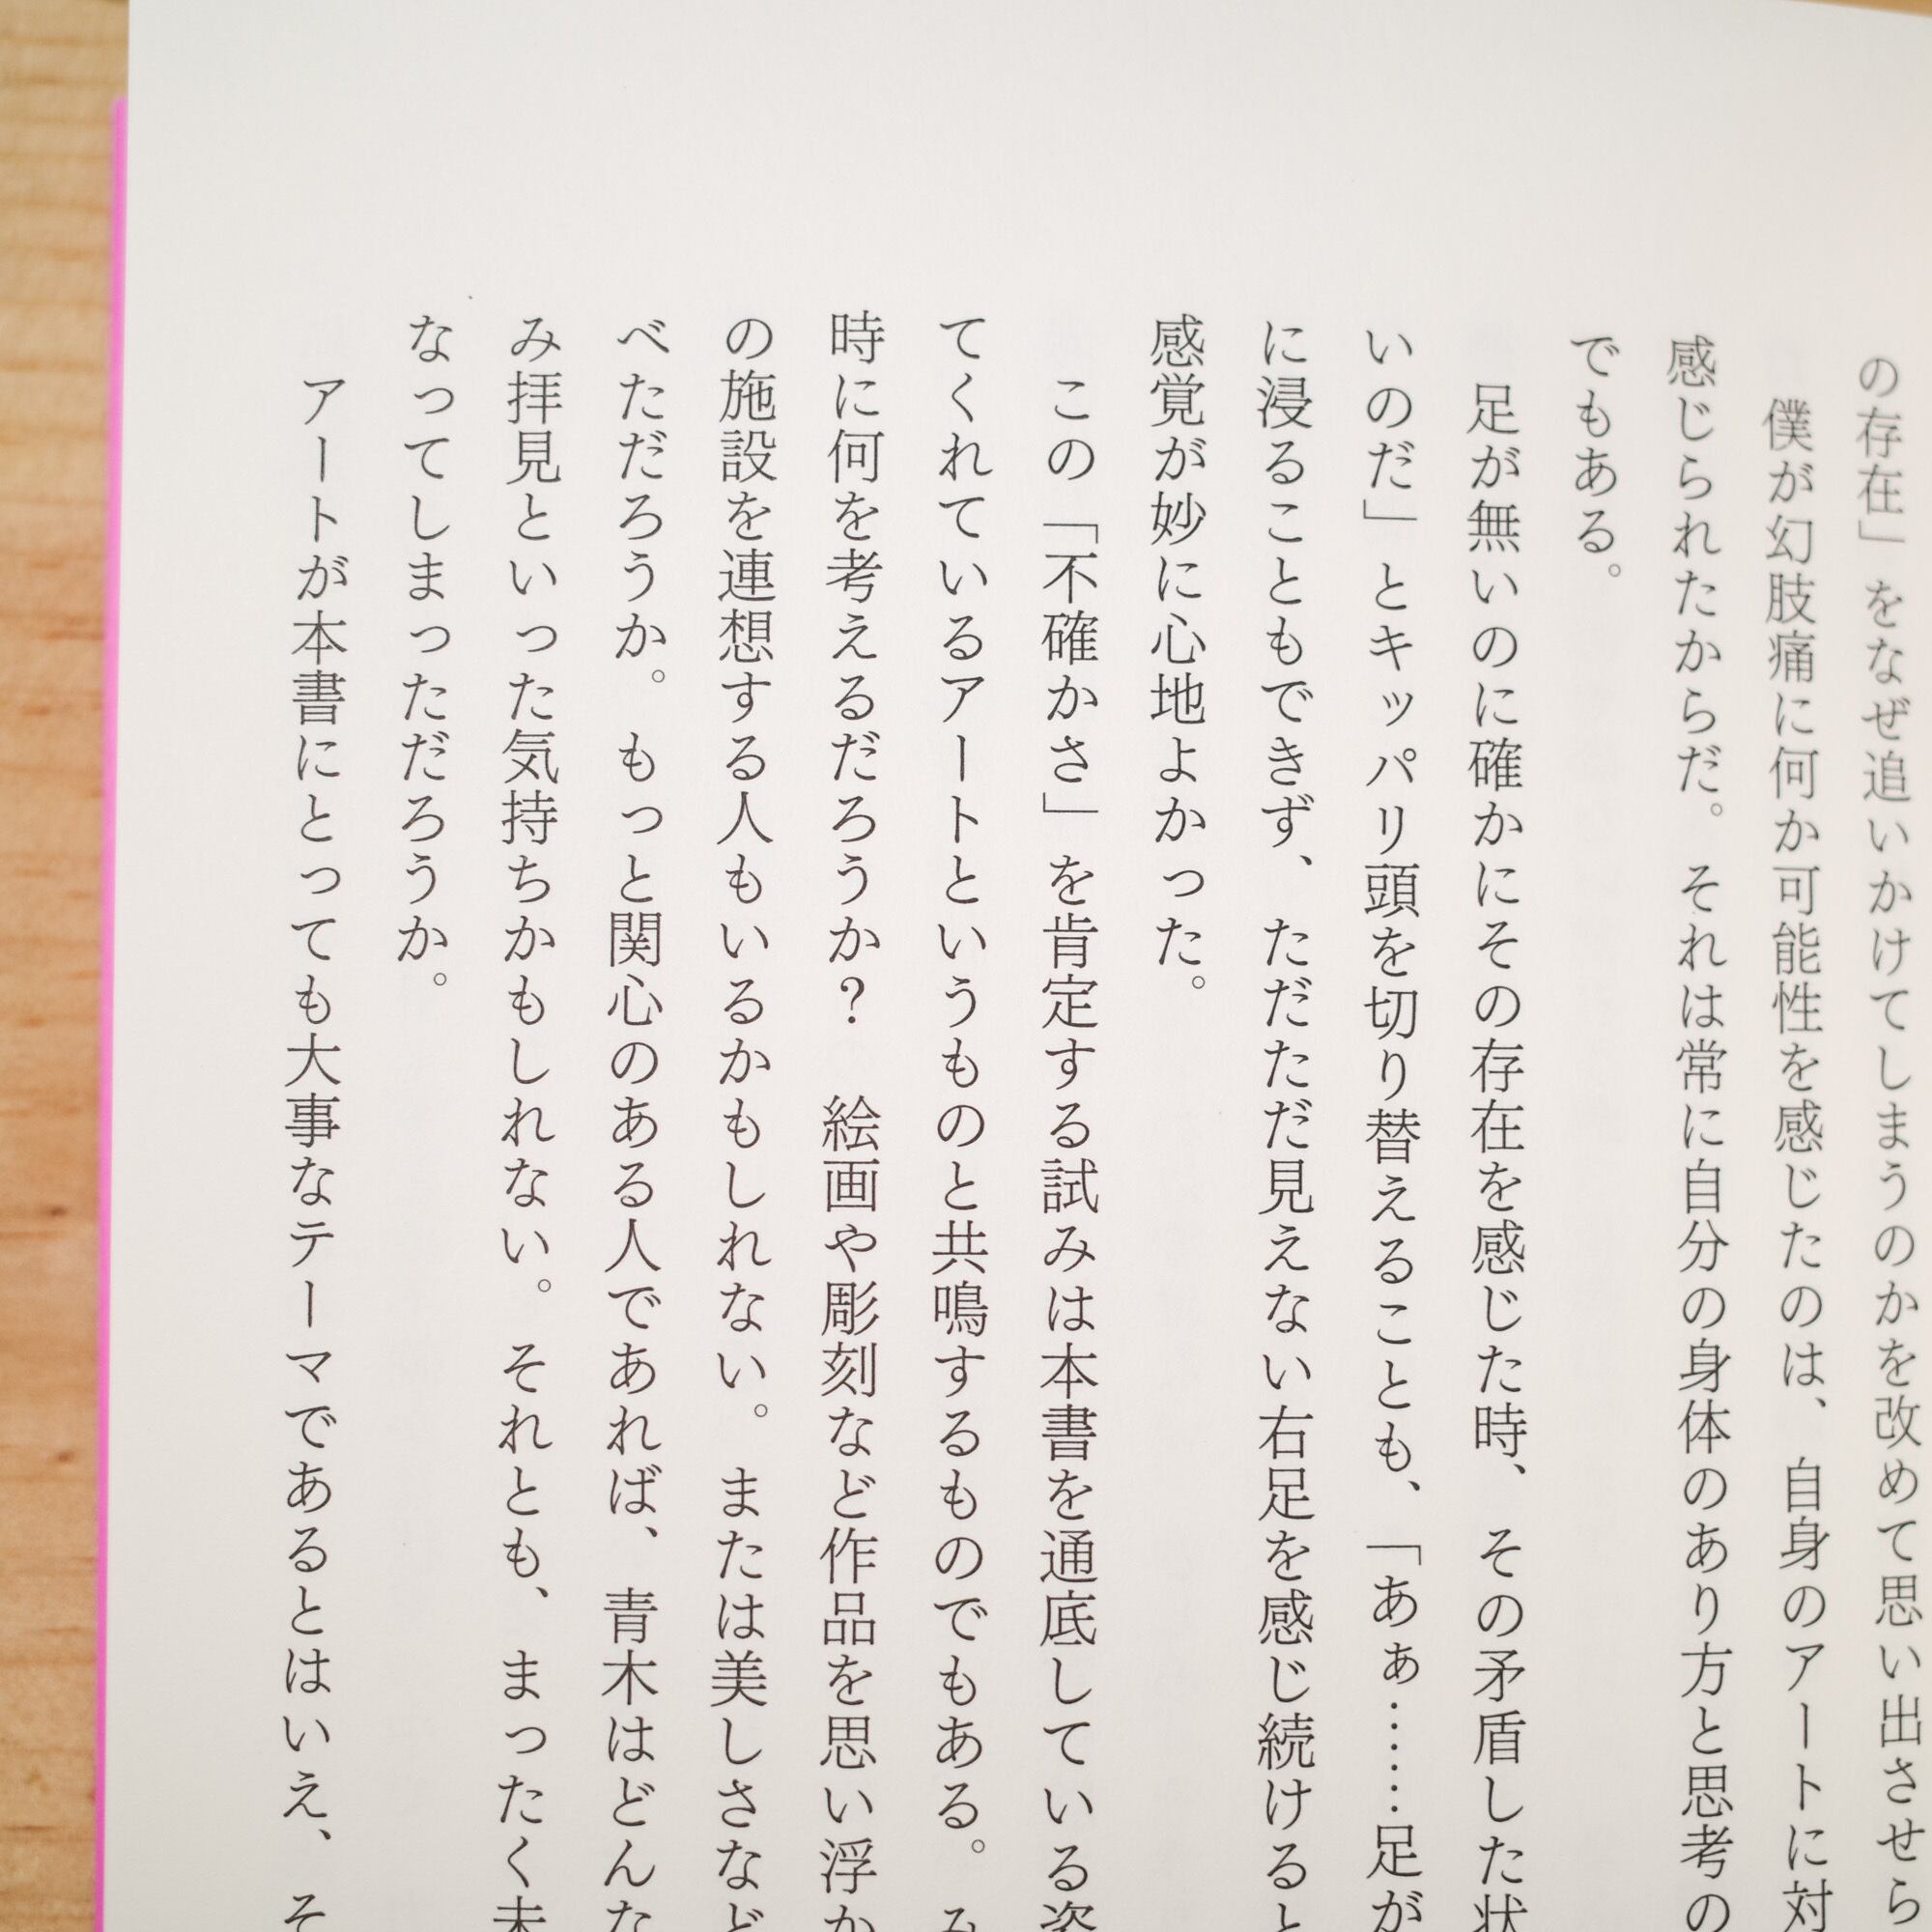 の存在」をなぜ追いかけてしまうのかを改めて思い出させら
僕が幻肢痛に何か可能性を感じたのは、自身のアートに対
感じられたからだ。それは常に自分の身体のあり方と思考の
でもある。
足が無いのに確かにその存在を感じた時、その矛盾した状
いのだ」とキッパリ頭を切り替えることも、「あぁ……足が
に浸ることもできず、ただただ見えない右足を感じ続けると
感覚が妙に心地よかった。
この「不確かさ」を肯定する試みは本書を通底している姿
てくれているアートというものと共鳴するものでもある。み
時に何を考えるだろうか？　絵画や彫刻など作品を思い浮か
の施設を連想する人もいるかもしれない。または美しさなど
べただろうか。もっと関心のある人であれば、青木はどんな
み拝見といった気持ちかもしれない。それとも、まったく未
なってしまっただろうか。
アートが本書にとっても大事なテーマであるとはいえ、そ